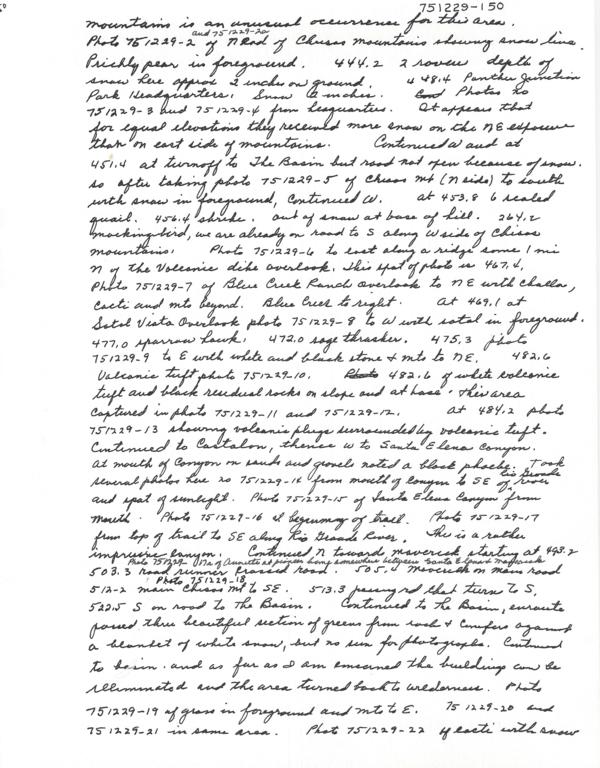 751229-150
mountains is an unusual occurrence for this area.
and 751229-2a
Photo 751229-2 of N end of Chisos Mountains showing snow line.
Prickly pear in foreground. 444.2 2 ravens depth of
snow here approx. 2 inches on ground. 448.4 Panther Junction
Park Headquarters. Snow inches. Photos no
751229-3 and 751229-4 from headquarters. It appears that
for equal elevations they received more snow on the NE exposure
than on east side of mountains. Continued W and at
451.4 at turnoff to The Basin but road not open because of snow.
so after taking photo 751229-5 of Chisos Mt (N side) to south
with snow in foreground, Continued W. at 453.8 6 scaled
quail. 456.4 shrike. out of snow at base of hill. 264.2
mockingbird, we are already on road to S along W side of Chisos
mountains. Photo 751229-6 to east along a ridge some 1 mi
N of the Volcanic dike overlook. This spot of photo is 467.4.
Photo 751229-7 of Blue Creek Ranch overlook to NE with cholla,
cacti and mts beyond. Blue Creek to right. At 469.1 at
Sotol Vista Overlook photo 751229-8 to W with sotol in foreground.
477.0 sparrow hawk. 472.0 sage thrasher. 475.3 photo
751229-9 to E with white and black stone & mts to NE. 482.6
Volcanic tuft photo 751229-10. 482.6 of white volcanic
tuft and black residual rocks on slope and at base. This area
captured in photo 751229-11 and 751229-12. at 484.2 photo
751229-13 showing volcanic plugs surrounded by volcanic tuft.
Continued to Castalon, thence W to Santa Elena Canyon.
At mouth of Canyon on sands and gravels noted a black phoebe. Took
several photos here no 751229-14 from mouth of canyon to SE of Rio Grande river
and spot of sunlight. Photo 751229-15 of Santa Elena Canyon from
mouth. Photo 751229-16 at beginning of trail. Photo 751229-17
from top of trail to SE along Rio Grande River. This is a rather
impressive canyon. Continued N toward maverick starting at 493.2
Photo 751229- of Annette at pioneer home somewhere between Santa Elena & Maverick
503.3 road runner crossed road. 505.4 Maverick on main road
Photo 751229-18
512-2 main Chisos Mt to SE. 513.3 passing rd that turns to S,
522.5 S on road to The Basin. Continued to the Basin, enroute
passed thru beautiful section of greens from and conifers against
a blanket of white snow, but no sun for photographs. Continued
to basin. and as far as I am concerned the building can be
eliminated and the area turned back to wilderness. Photo
751229-19 of grass in foreground and mts to E. 751229-20 and
751229-21 in same area. Photo 751229-22 of cacti with snow